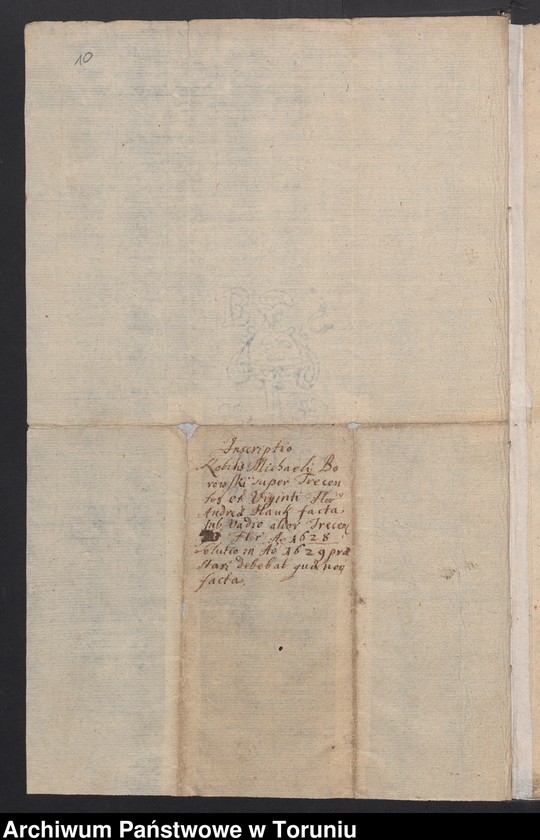 10
Inscriptio
Michaelis Bo
rowski super Trecen
tos et Viginti Flor
Andreæ Hauk facta
sub vadio alior Trecen
Flor Aō 1628
solutio in Aō 1629 præ
stari debebat quæ non
facta.
Archiwum Państwowe w Toruniu